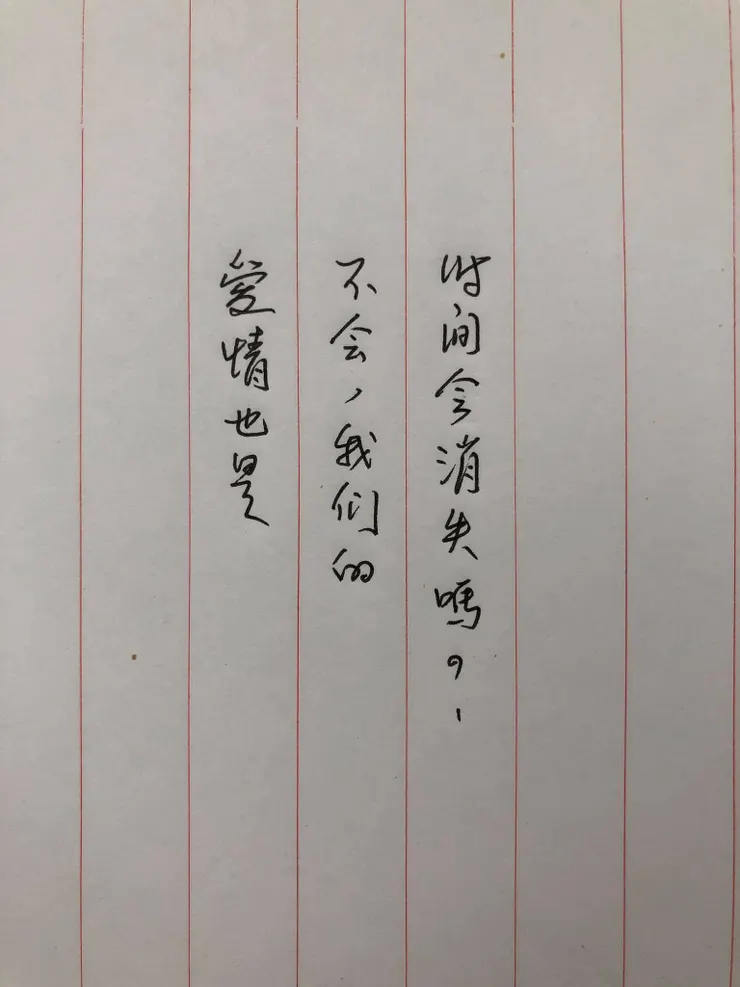 时间会消失嗎?
不会,我们的
愛情也是